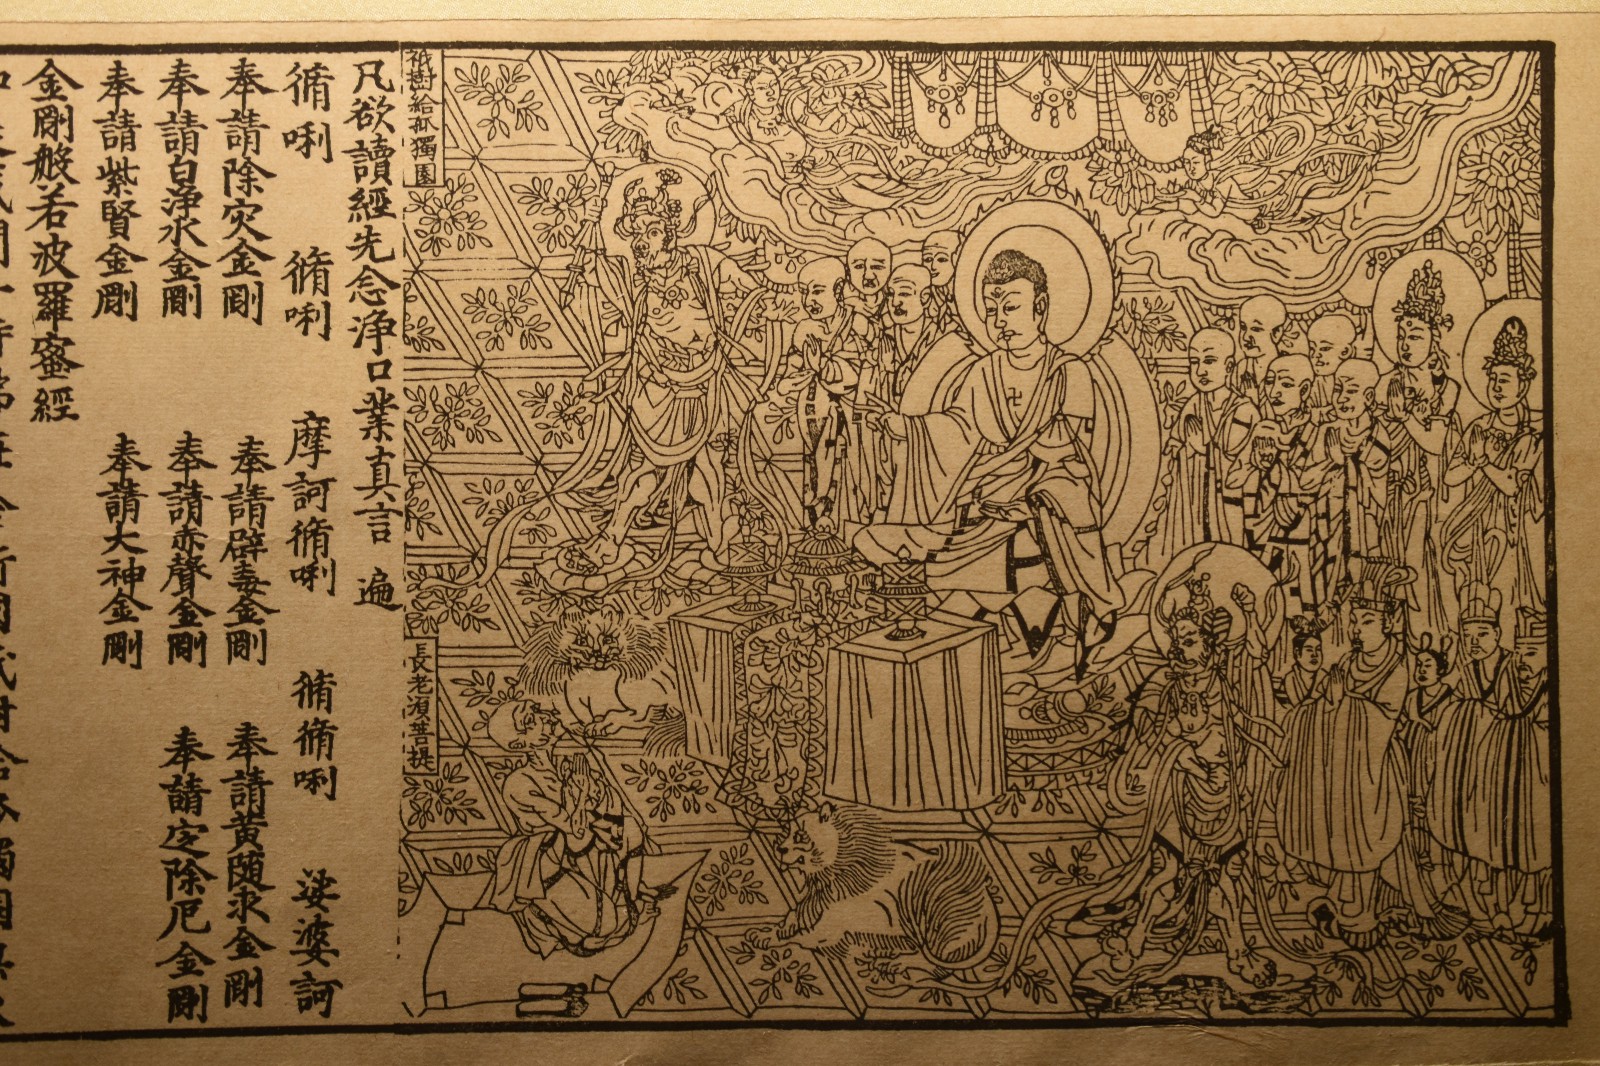 祇樹給孤獨園
長老湏菩提
凡欲讀經先念浄口業真言 遍
脩唎 脩唎 摩訶脩唎 脩脩唎 娑婆訶
奉請除灾金剛 奉請辟毒金剛 奉請黄随求金剛
奉請白浄水金剛 奉請赤聲金剛 奉請定除厄金剛
奉請紫賢金剛 奉請大神金剛
金剛般若波羅蜜經